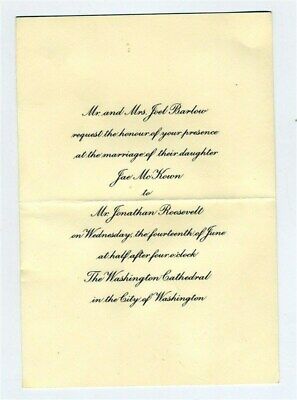 Mr. and Mrs. Joel Barlow
request the honour of your presence
at the marriage of their daughter
Jae McKown
to
Mr. Jonathan Roosevelt
on Wednesday, the fourteenth of June
at half after four o'clock
The Washington Cathedral
in the City of Washington